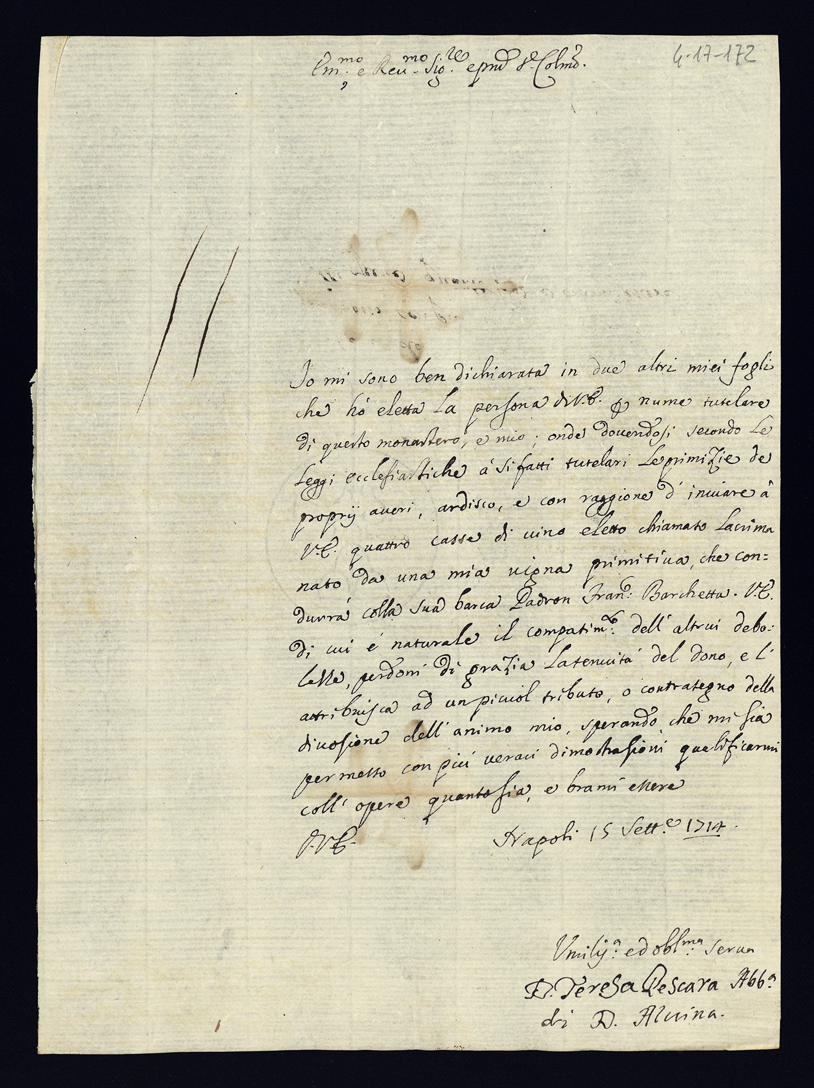 4-17-172
Em.mo e Reu.mo Sig.re e pnē Sē Colmo.
Io mi sono ben dichiarata in due altri miei fogli
che hó eletta la persona di V.E. ꝑ nume tutelare
di questo monastero, e mio; onde douendosi secondo le
leggi ecclesiastiche á sifatti tutelari le primizie de
proprij aueri, ardisco, e con raggione d'inuiare á
V.E. quattro casse di uino eletto chiamato Lacrima
nato da una mia uigna primitiua, che con=
durrá colla sua barca Padron Fran.o Barchetta. V.E.
di cui é naturale il compatim.to dell'altrui debo:
lezze, perdoni di grazia la tenuitá del dono, e l'
attribuisca ad un picciol tributo, o contrasegno della
diuosione dell'animo mio, sperando che mi sia
permesso con piú ueraci dimostrasioni qualificarmi
coll'opere quanto sia, e brami essere
D.V.E. Napoli 15 Sett.e 1714.
Vmiliss.a ed obl.ma serua
D. Teresa Pescara Abb.a
di D. Aluina.